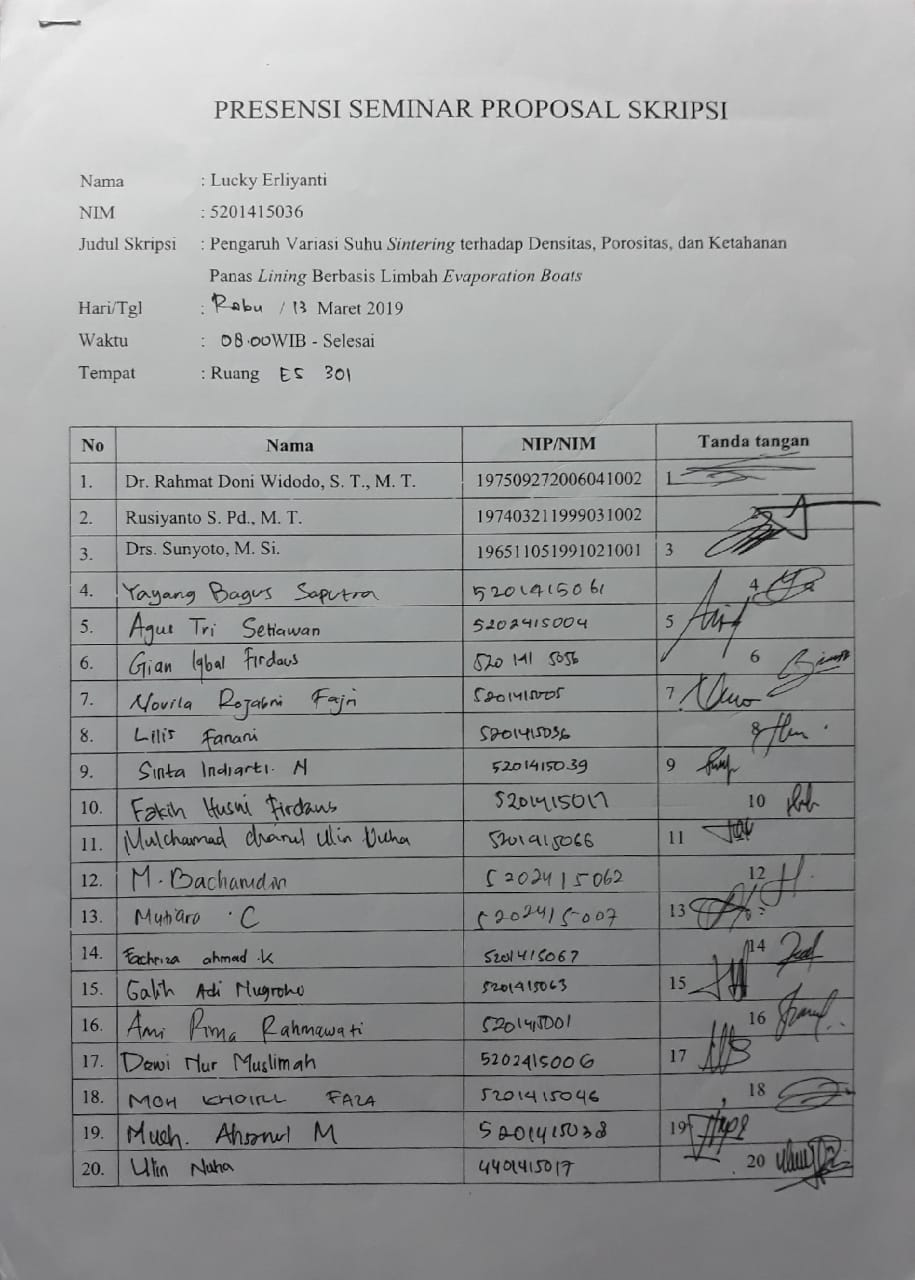 PRESENSI SEMINAR PROPOSAL SKRIPSI
Nama : Lucky Erliyanti
NIM : 5201415036
Judul Skripsi : Pengaruh Variasi Suhu Sintering terhadap Densitas, Porositas, dan Ketahanan
Panas Lining Berbasis Limbah Evaporation Boats
Hari/Tgl : Rabu / 13 Maret 2019
Waktu : 08.00WIB - Selesai
Tempat : Ruang E5 301
No Nama NIP/NIM Tanda tangan
1. Dr. Rahmat Doni Widodo, S. T., M. T. 197509272006041002 1
2. Rusiyanto S. Pd., M. T. 197403211999031002 2
3. Drs. Sunyoto, M. Si. 196511051991021001 3
4. Yayang Bagus Saputra 5201415061 4
5. Agus Tri Setiawan 5202415004 5
6. Gian Iqbal Firdaus 5201415056 6
7. Novila Rozabni Fajri 5201415005 7
8. Lilis Fanani 5201415036 8
9. Sinta Indiarti. N 5201415039 9
10. Fakih Husni Firdaus 5201415017 10
11. Mulchamad Ulin Nuha 5201415066 11
12. M. Bacharudin 5202415062 12
13. Mutiara . C 5202415007 13
14. Fachriza ahmad .K 5201415067 14
15. Galih Adi Nugroho 5201415063 15
16. Ami Rima Rahmawati 5201415001 16
17. Dewi Nur Muslimah 5202415006 17
18. MOH KHOIRUL FAZA 5201415046 18
19. Much. Ahsanul M 5201415038 19
20. Ulin Nuha 4401415017 20